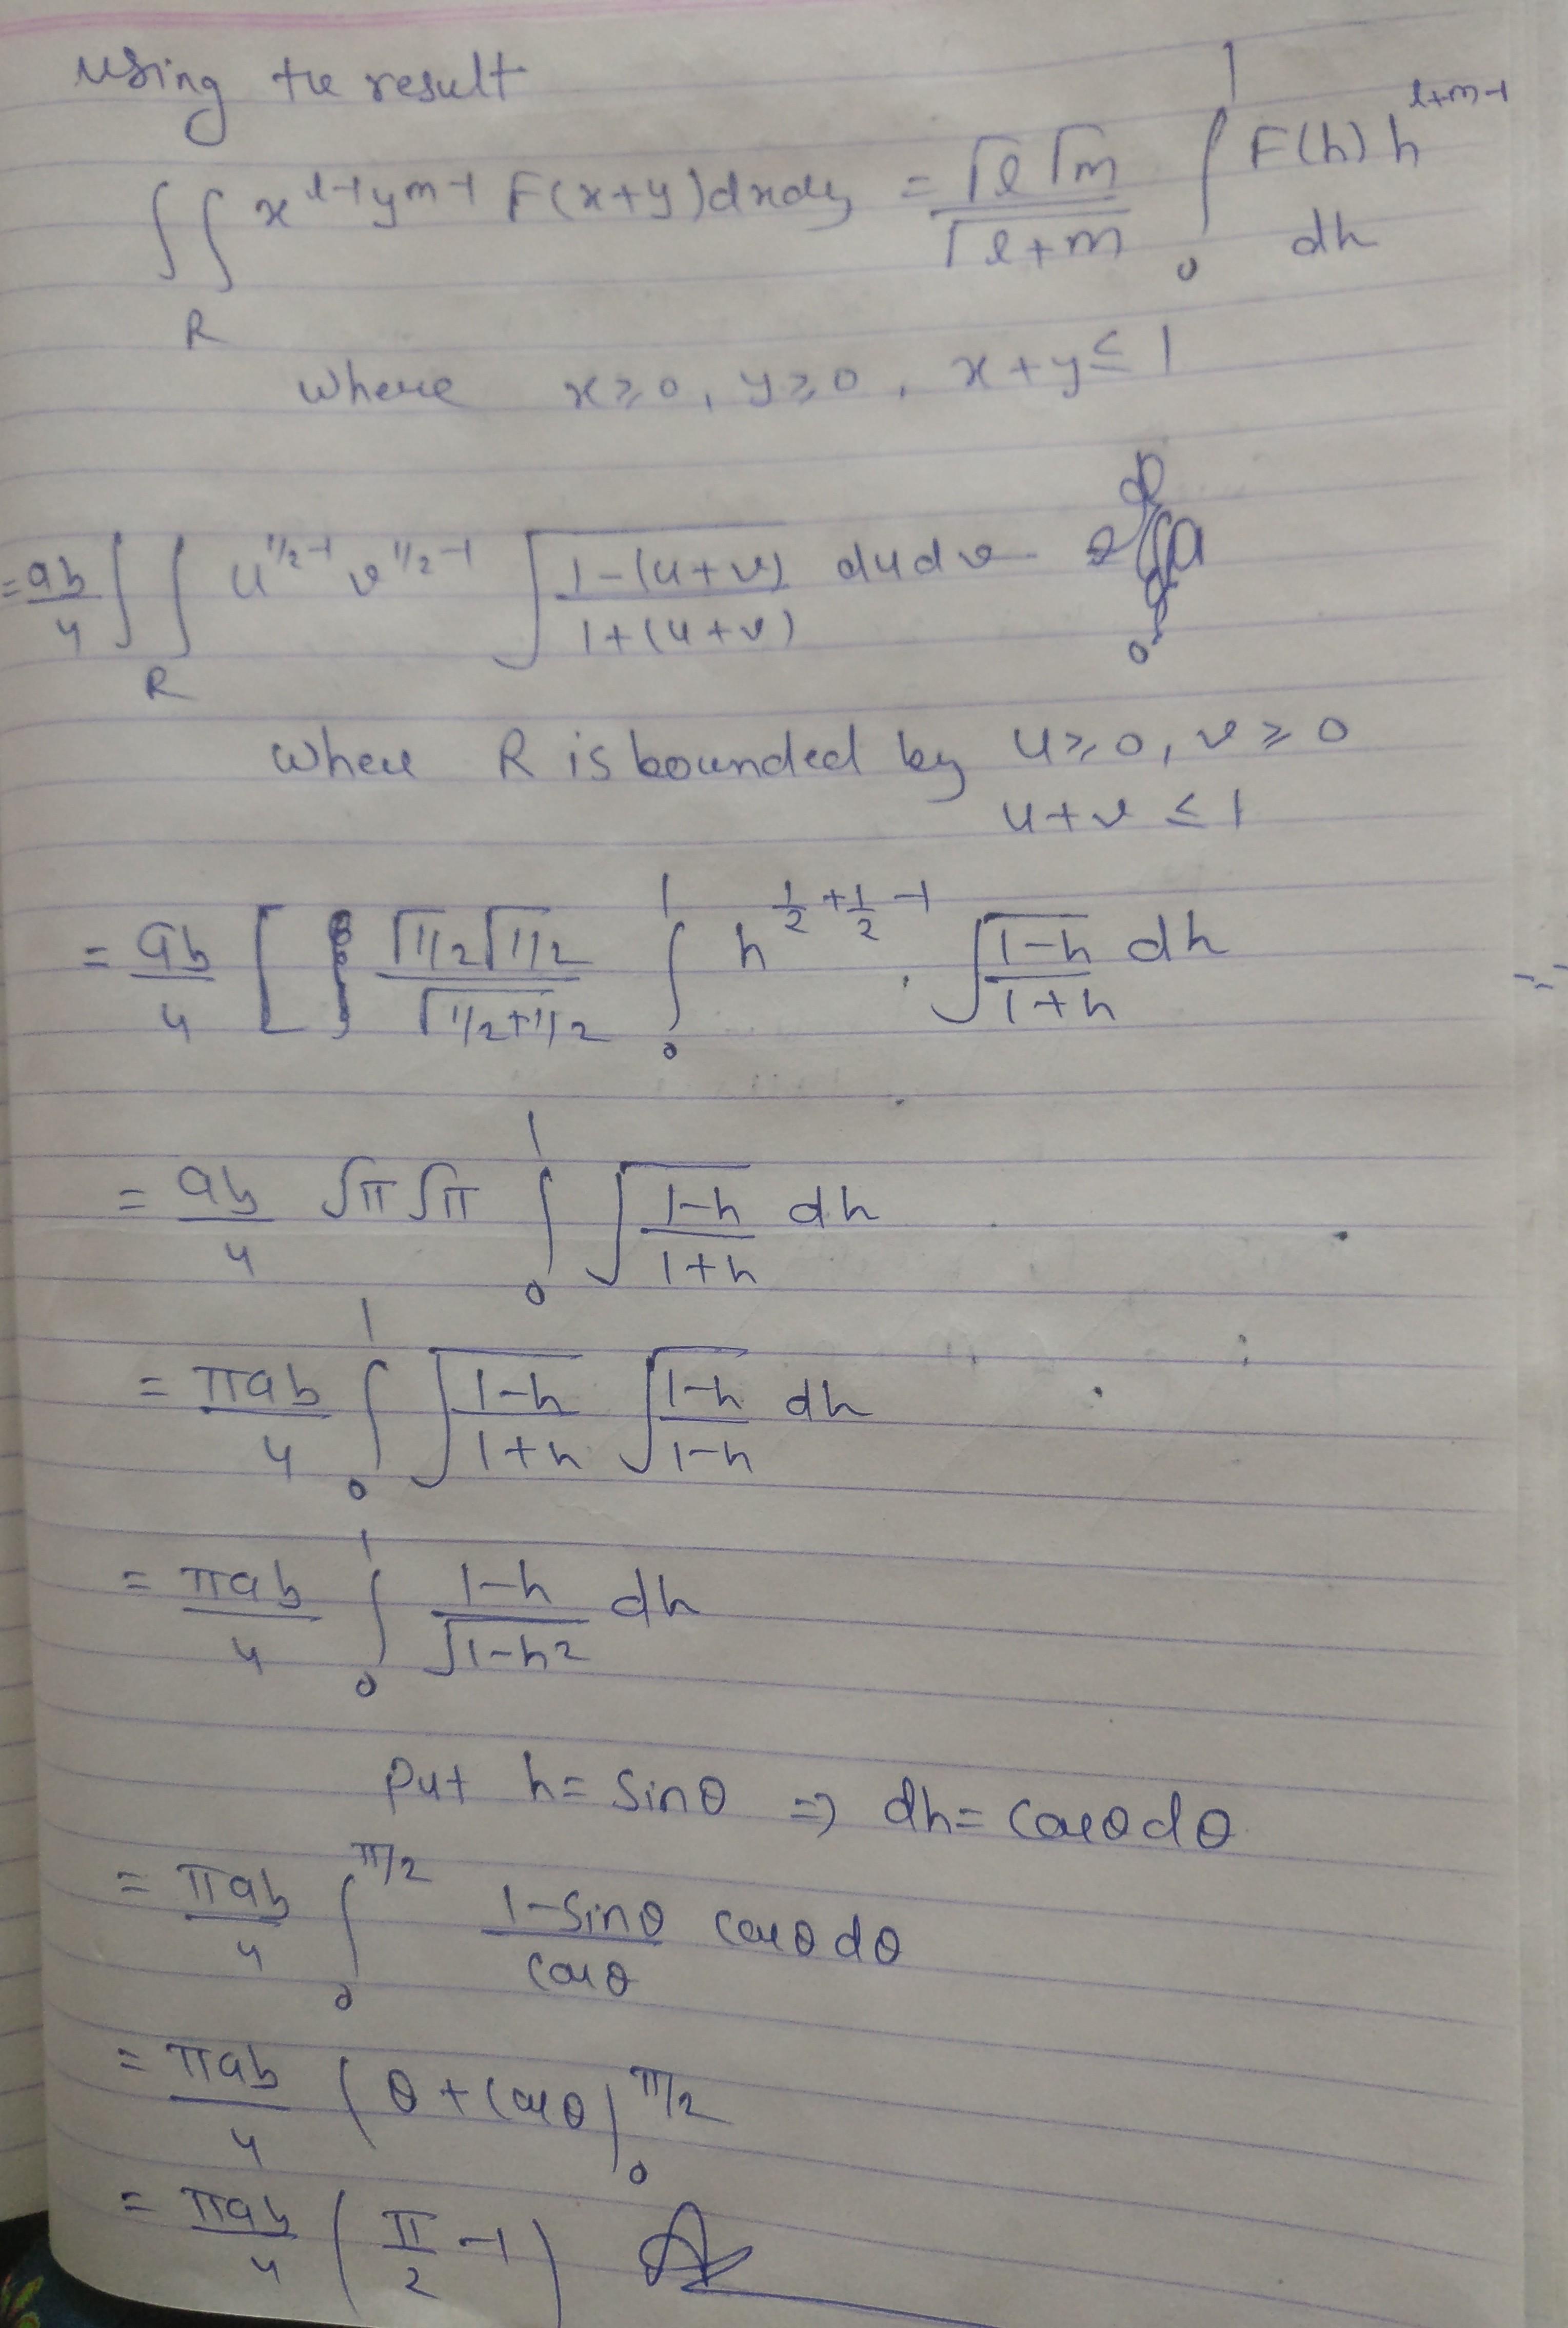 Using the result
∬_R x^{l-1} y^{m-1} F(x+y) dxdy = \frac{Γl Γm}{Γl+m} ∫_0^1 F(h) h^{l+m-1} dh
where x≥0, y≥0, x+y≤1
= \frac{ab}{4} ∬_R u^{1/2-1} v^{1/2-1} \sqrt{\frac{1-(u+v)}{1+(u+v)}} dudv
where R is bounded by u≥0, v≥0
u+v ≤ 1
= \frac{ab}{4} [ \frac{Γ1/2 Γ1/2}{Γ1/2+1/2} ∫_0^1 h^{\frac{1}{2}+\frac{1}{2}-1} . \sqrt{\frac{1-h}{1+h}} dh
= \frac{ab}{4} √π √π ∫_0^1 \sqrt{\frac{1-h}{1+h}} dh
= \frac{πab}{4} ∫_0^1 \sqrt{\frac{1-h}{1+h}} \sqrt{\frac{1-h}{1-h}} dh
= \frac{πab}{4} ∫_0^1 \frac{1-h}{\sqrt{1-h^2}} dh
Put h = sinθ ⇒ dh = cosθ dθ
= \frac{πab}{4} ∫_0^{π/2} \frac{1-sinθ}{cosθ} cosθ dθ
= \frac{πab}{4} (θ + cosθ)_0^{π/2}
= \frac{πab}{4} (\frac{π}{2} - 1)